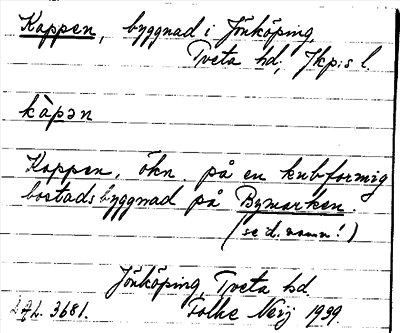 Koppen, byggnad i Jönköping
Tveta hd, Jkp:s l.
kàpən
Koppen, ökn. på en kubformig
bostadsbyggnad på Bymarken.
(se d. namn!)
Jönköping, Tveta hd
3681. Folke Neij 1939